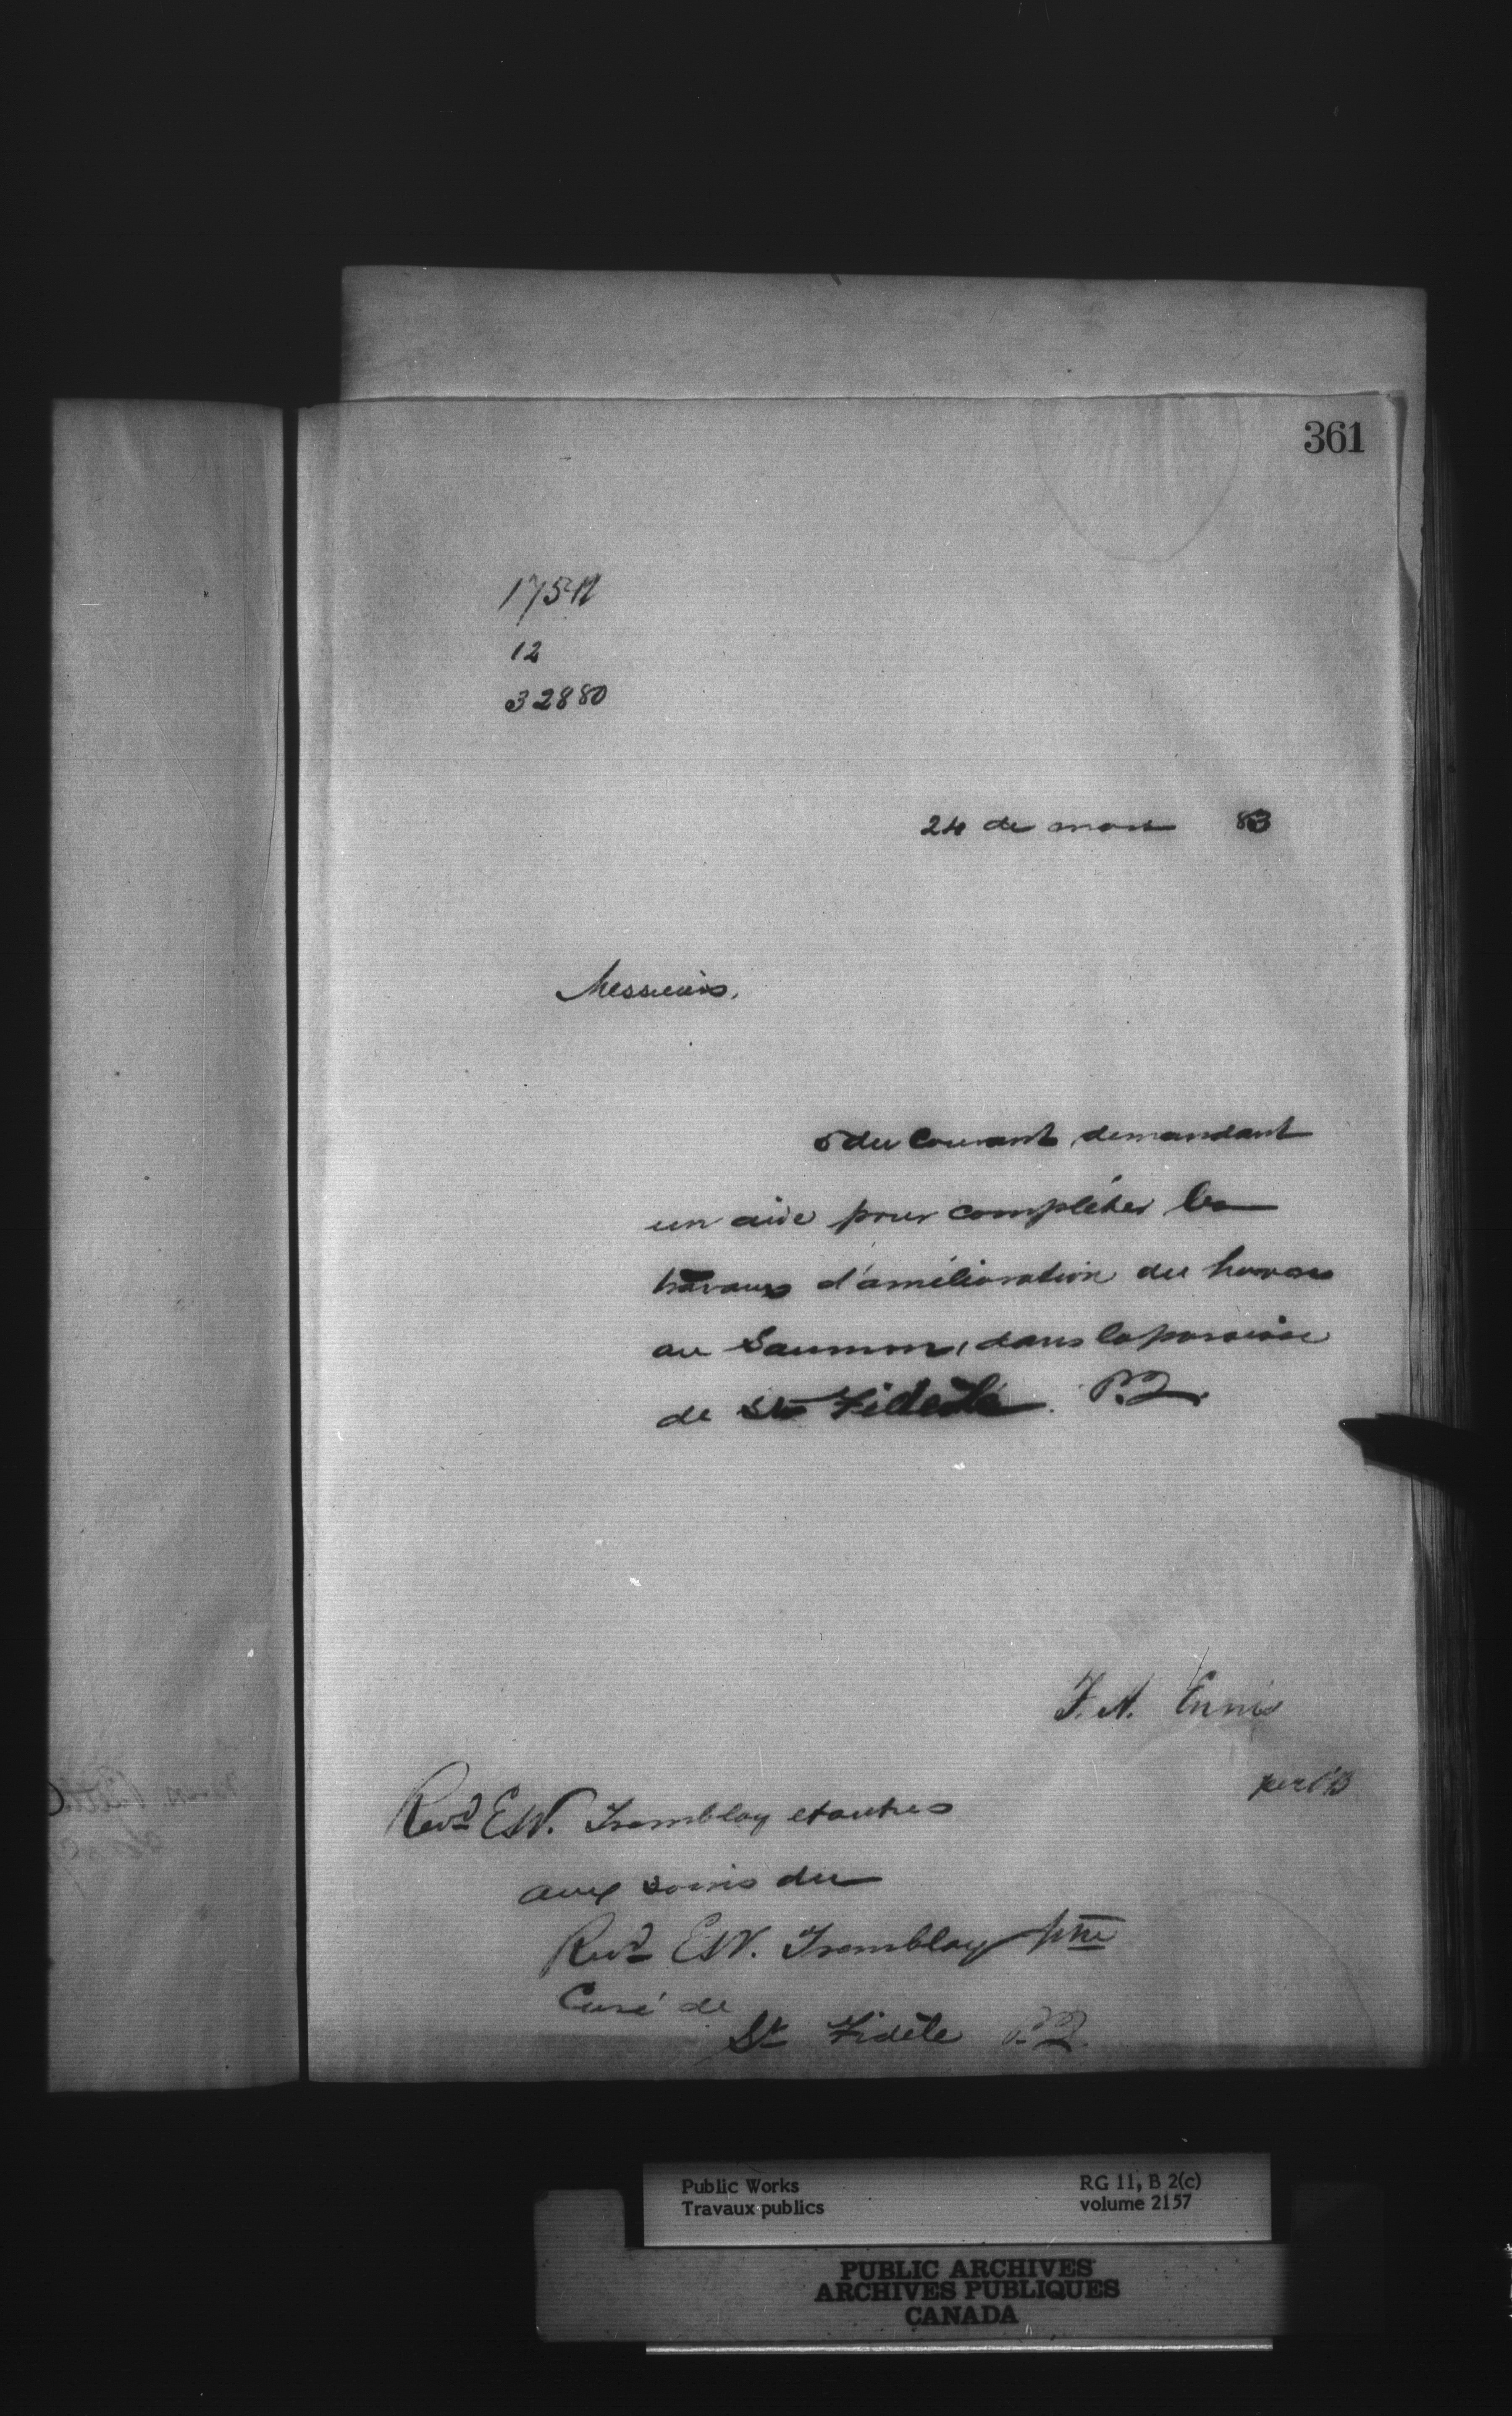 361
12
32880
24 de mars 83
Messieurs,
5 du courant demandant
un aide pour compléter les
travaux d'amélioration du havre
au Saumon, dans la paroisse
de St Fidèle. P.Q.
F. A. Ennis
per
Revd E.W. Tremblay et autres
aux soins du
Revd E.W. Tremblay ptre
Curé de
St Fidèle P.Q.
Public Works
Travaux publics
RG 11, B 2(c)
volume 2157
PUBLIC ARCHIVES
ARCHIVES PUBLIQUES
CANADA